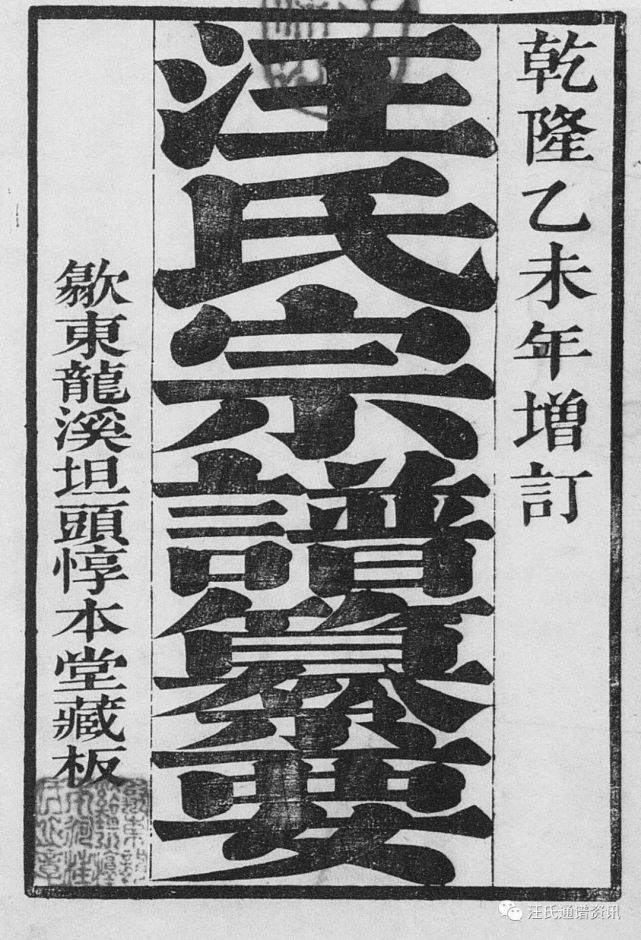 乾隆乙未年增訂
汪氏宗譜纂要
歙東龍溪坦頭惇本堂藏板
汪氏通谱资讯